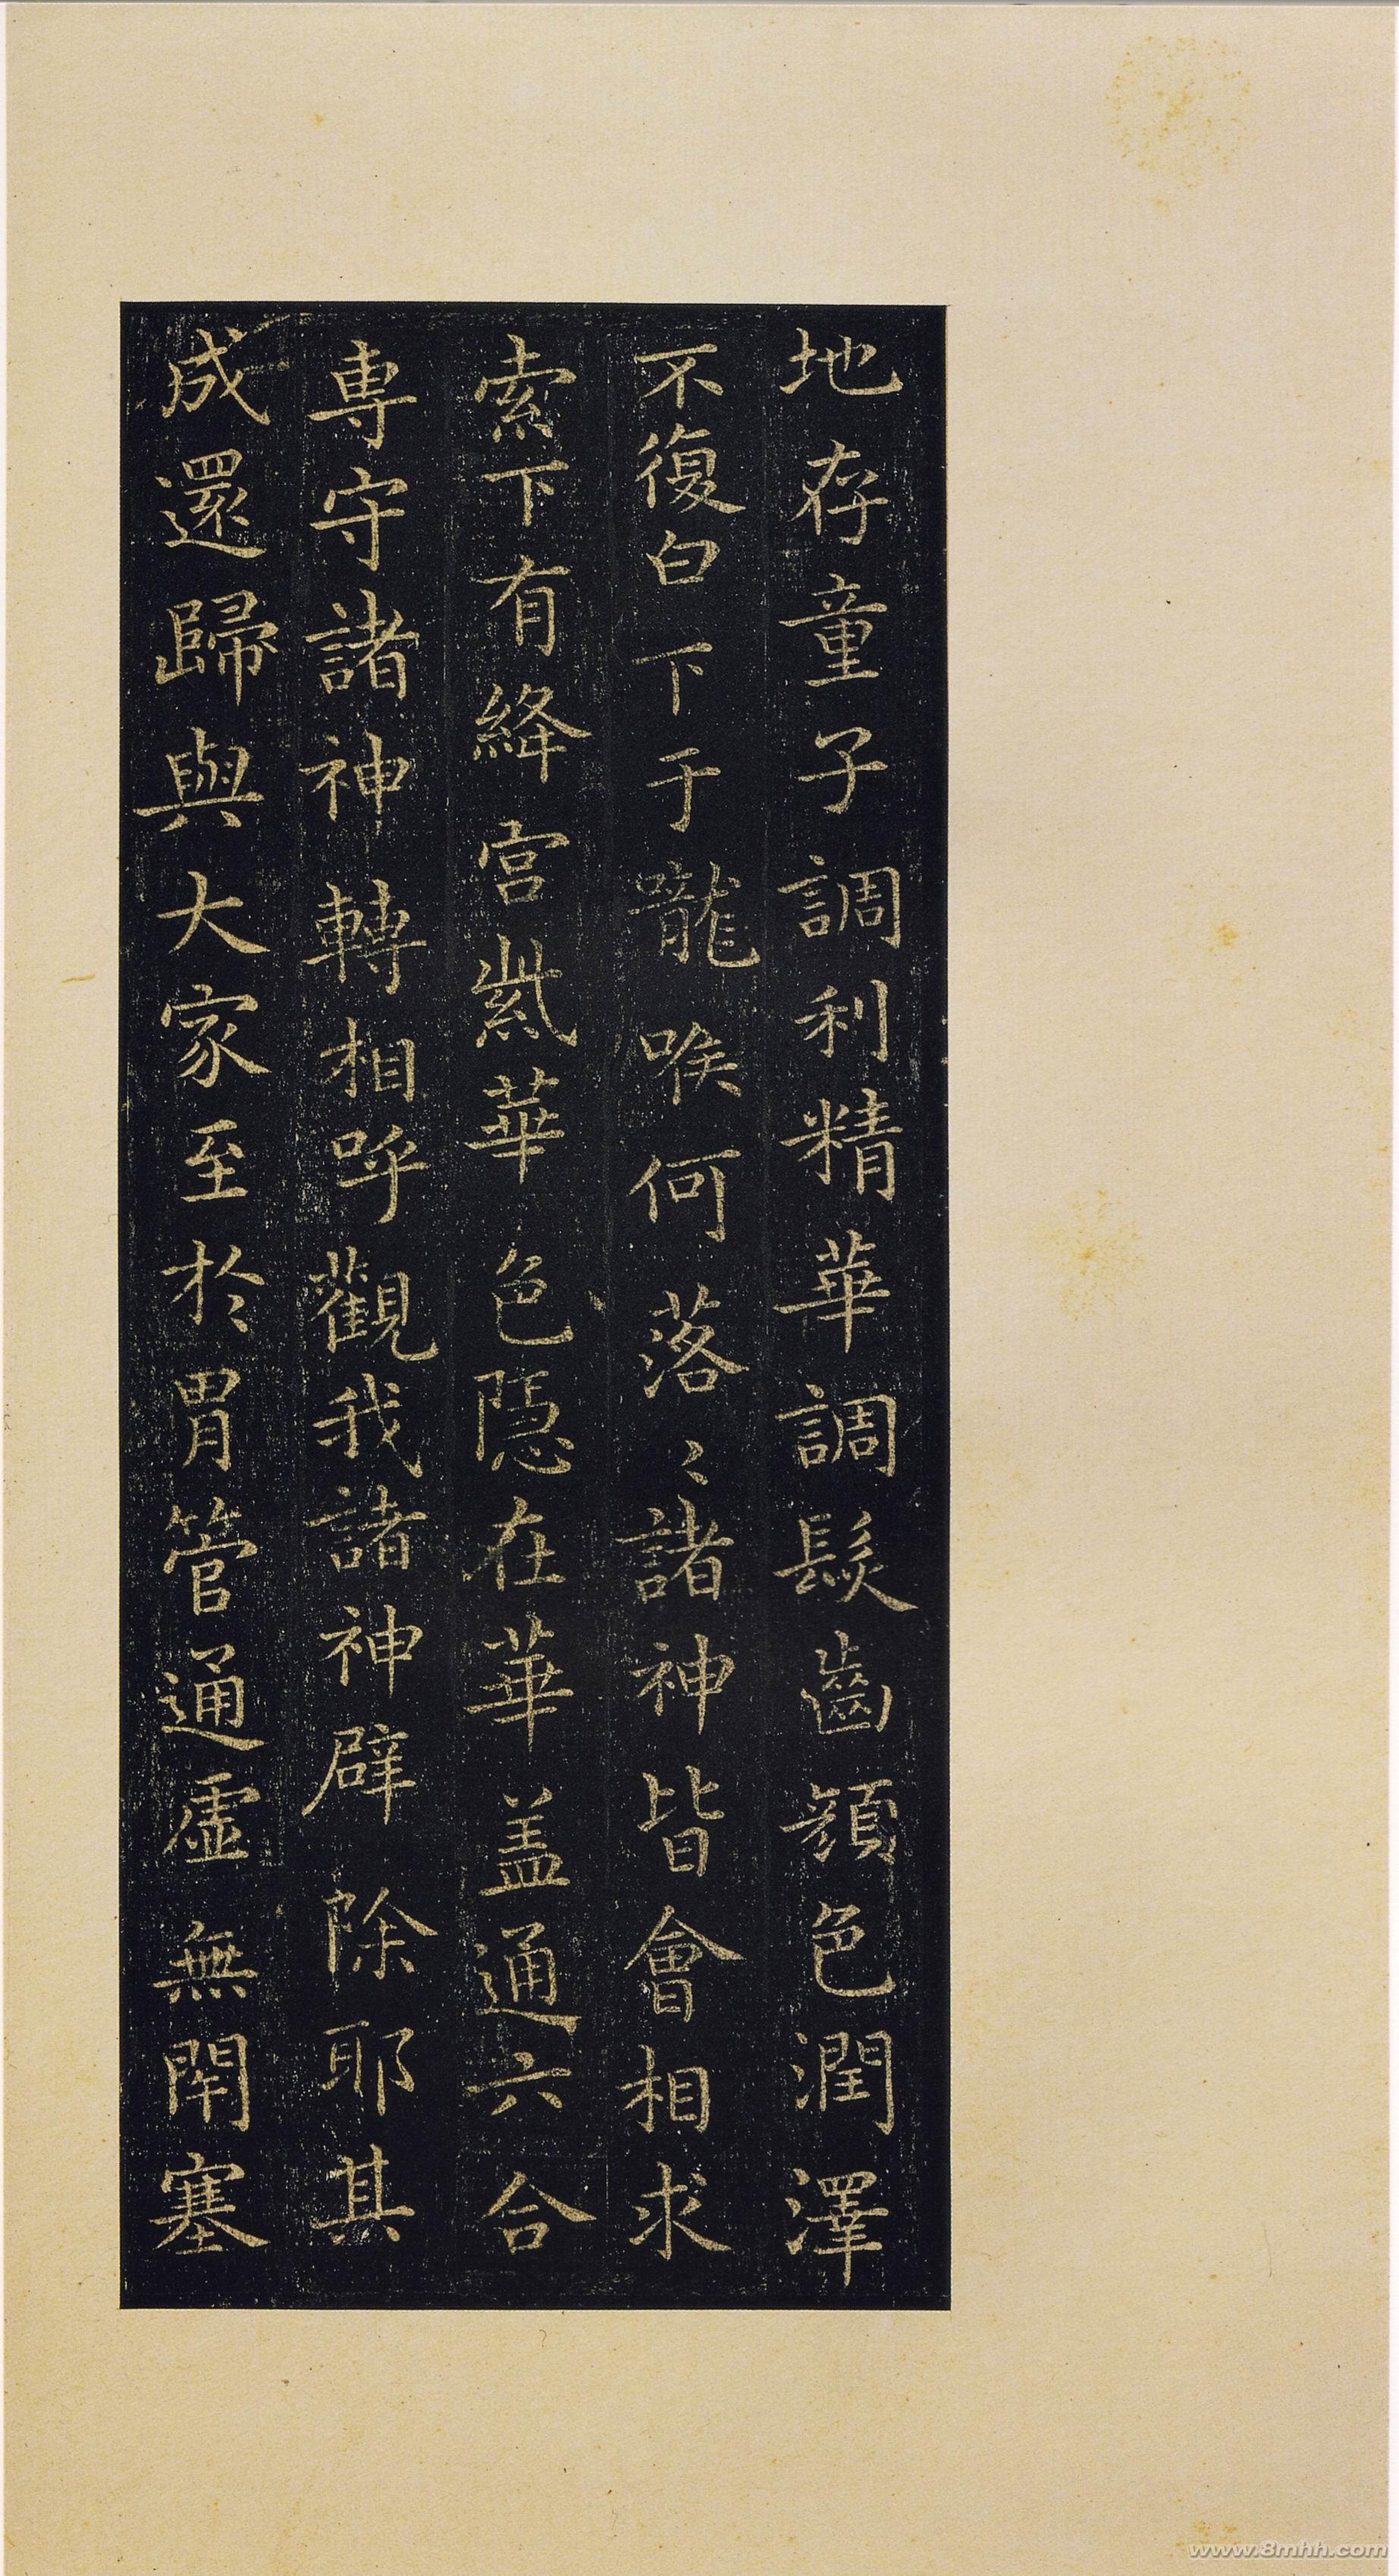 地存童子調利精華調髮齒顏色潤澤
不復白下于嚨喉何落〻諸神皆會相求
索下有絳宮紫華色隱在華盖通六合
專守諸神轉相呼觀我諸神辟除耶其
成還歸與大家至於胃管通虛無閇塞
www.8mhh.com